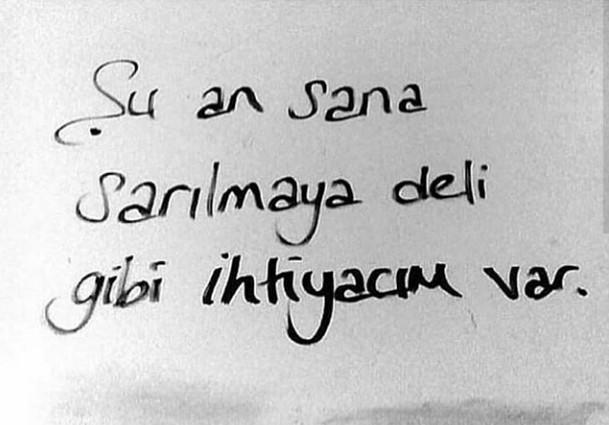 Şu an sana
sarılmaya deli
gibi ihtiyacım var.